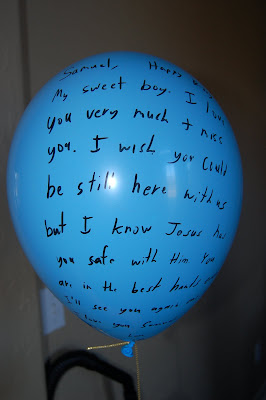 Samuel, Happy
My sweet boy. I love
you very much + miss
you. I wish you could
be still here with us
but I know Jesus has
you safe with Him. You
are in the best hands
I'll see you again
love you